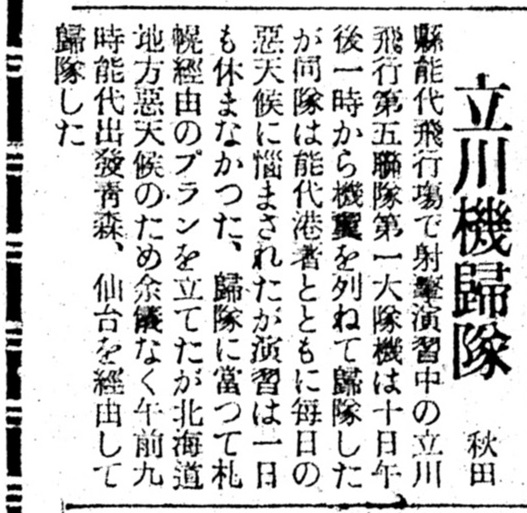 立川機歸隊
秋田
縣能代飛行塲で射擊演習中の立川
飛行第五聯隊第一大隊機は十日午
後一時から機翼を列ねて歸隊した
が同隊は能代港着とともに毎日の
惡天候に惱まされたが演習は一日
も休まなかつた、歸隊に當つて札
幌經由のプランを立てたが北海道
地方惡天候のため余儀なく午前九
時能代出發靑森、仙台を經由して
歸隊した